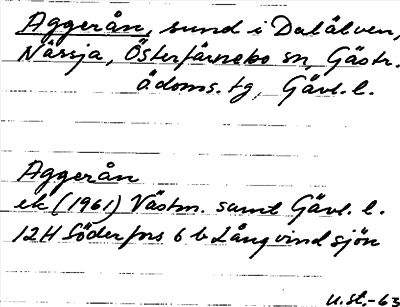 Aggerån, sund i Dalälven,
Närsja, Österfärnebo sn, Gästr.
ödoms. tg, Gävl. l.
Aggerån
ek (1961) Västm. samt Gävl. l.
12H Söderfors 6 b Långvindsjön
u.st.-63